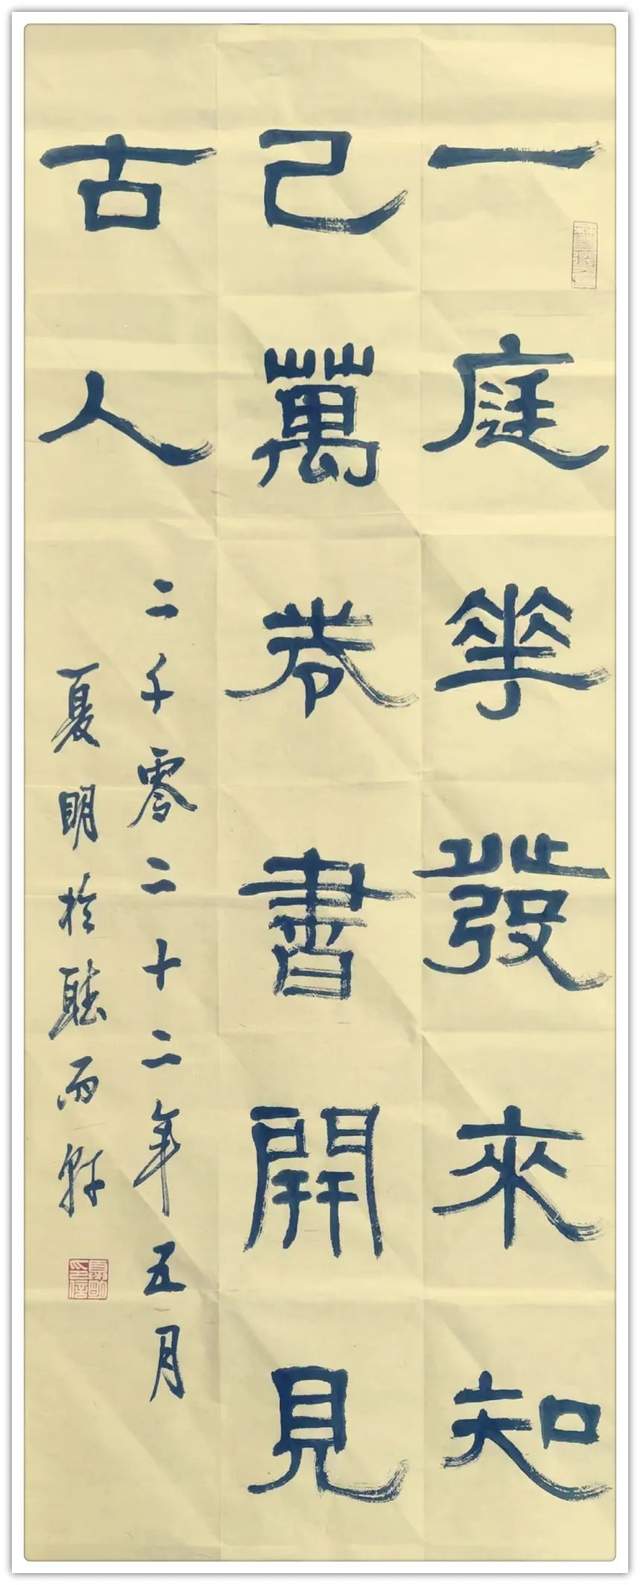 一庭華發來知
己萬卷書開見
古人
二千零二十二年五月
夏明於聽雨軒